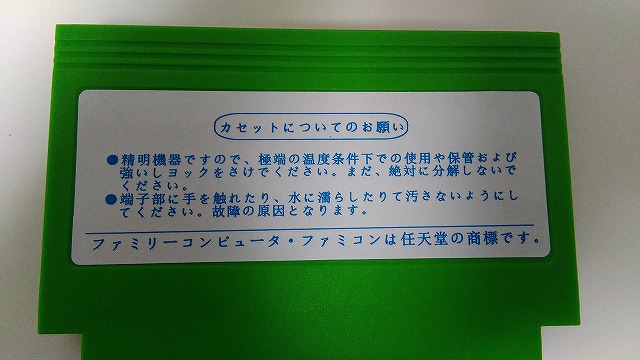 カセットについてのお願い
●精明機器ですので、極端の温度条件下での使用や保管および
強いしヨックをさけでください。まだ、絶対に分解しないで
ください。
●端子部に手を触れたり、水に濡らしたりて汚さないようにし
てください。故障の原因となります。
ファミリーコンピュータ・ファミコンは任天堂の商標です。